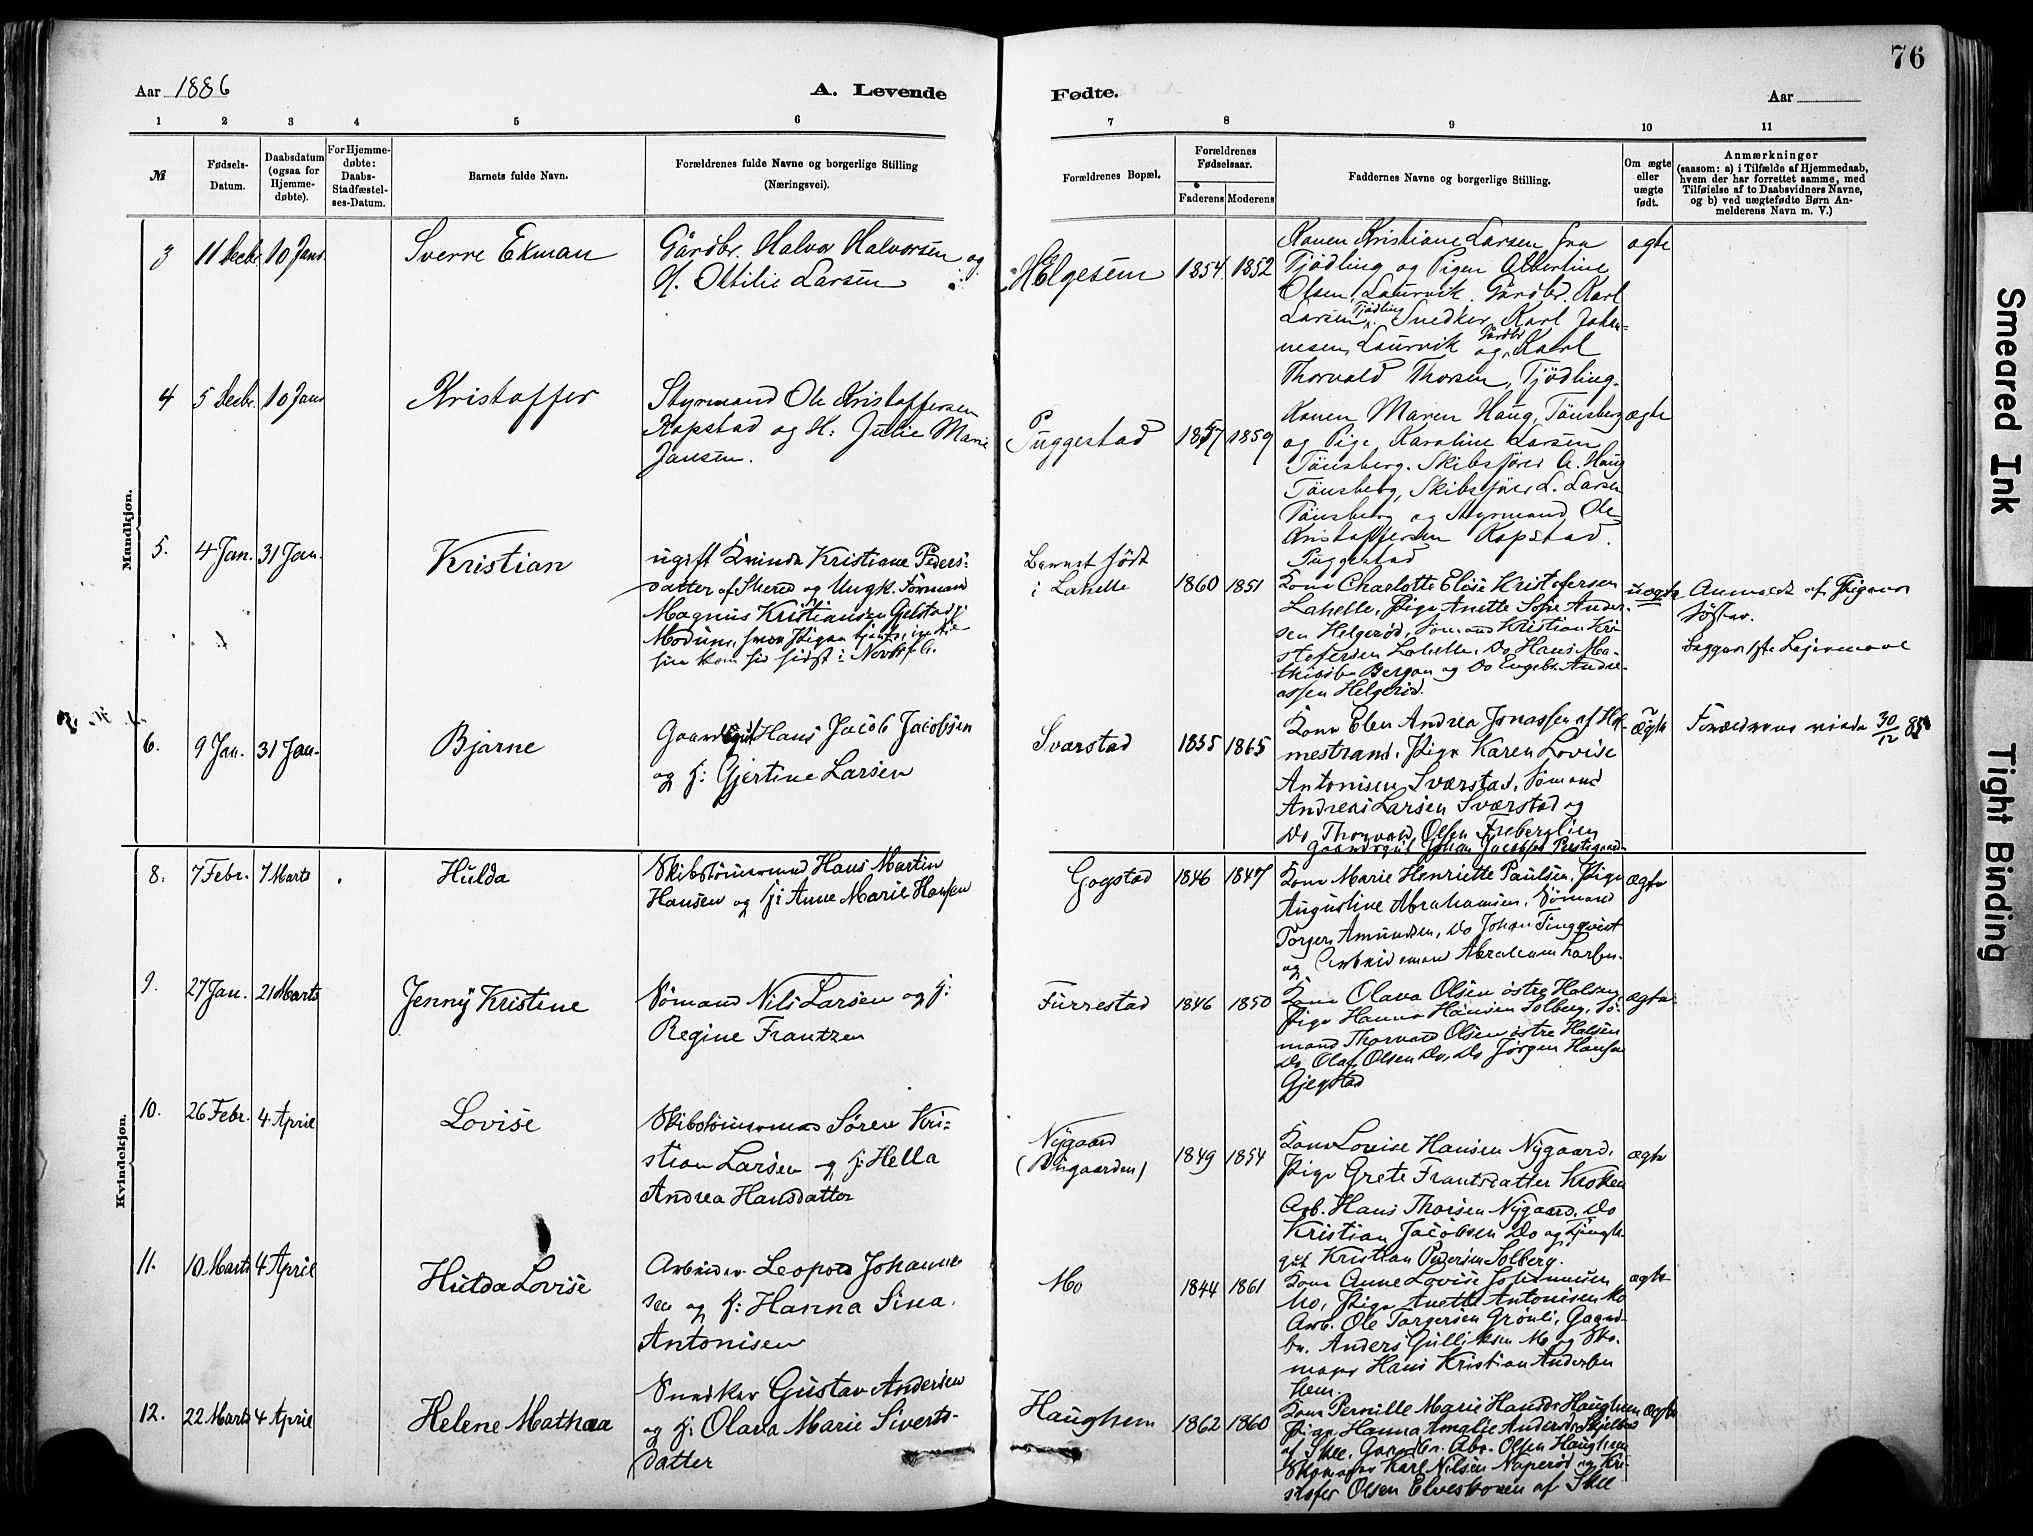 76
Aar 1886
A. Levende
Fødte.
Aar
1 2 3 4 5 6 7 8 9 10 11
№
Fødsels-
Datum.
Daabsdatum
(ogsaa for
Hjemme-
døbte).
For Hjemme-
døbte:
Daabs-
Stadfæstel-
ses-Datum.
Barnets fulde Navn.
Forældrenes fulde Navne og borgerlige Stilling
(Næringsvei).
Forældrenes Bopæl.
Forældrenes
Fødselsaar.
Faderens
Moderens
Faddernes Navne og borgerlige Stilling.
Om ægte
eller
uægte
født.
Anmærkninger
(saasom: a) i Tilfælde af Hjemmedaab,
hvem der har forrettet samme, med
Tilføielse af to Daabsvidners Navne,
og b) ved uægtefødte Børn An-
melderens Navn m. V.)
Mandkjøn.
3 11 Decbr. 10 Jan.
Sverre Ekman
Gårdbr. Halvor Halvorsen og
H. Ottilie Larsen
Helgesem 1854 1852
Konen Kristiane Larsen fra
Tjødling og Pigen Albertine
Olsen, Laurvik. Gårdbr. Karl
Larsen, Tjødling, Snedker Karl Johan-
nesen, Laurvik og Gårdbr. Karl
Thorvald Thorsen, Tjødling.
ægte
4 5 Decbr. 10 Jan.
Kristoffer
Styrmand Ole Kristoffersen
Kopstad og H: Julie Marie
Jansen.
Puggestad 1857 1859
Konen Maren Haug, Tønsberg
og Pige Karoline Larsen
Tønsberg. Skibsfører A. Haug
Tønsberg, Skibsfører L. Larsen
Tønsberg og Styrmand Ole
Kristoffersen Kopstad.
Puggestad
ægte
5. 4 Jan. 31 Jan.
Kristian
ugift Kvinde Kristiane Peders-
datter af Skered og Ungk. Sømand
Magnus Kristiansen Gulstad i
Modum, hvor Pigen tjente, inden
hun kom hid sidst i Novbr f. A.
Barnet født
i Lahelle
1860 1851
Kone Charlotte Elise Kristofersen
Lahelle, Pige Anette Sofie Ander-
sen Helgerød, Sømand Kristian Kri-
stofersen Lahelle, Do Hans Ma-
thisen Bergan og Do Engebr. Andre-
assen Helgerød.
uægte
Anmeldt af Pigens
Søster.
Begges 1ste Lejermaal
6. 9 Jan. 31 Jan.
Bjarne
Gaardsgut Hans Jacob Jacobsen
og H: Gjertine Larsen
Sværstad 1855 1865
Kone Elen Andrea Jonassen af Hol-
mestrand, Pige Karen Lovise
Antonisen Sværstad, Sømand
Andreas Larsen Sværstad og
Do Thorvald Olsen Freberglien
Gaardsgut Johan Jacobsen Prestegaard
ægte
Forældrene viede 30/12 85
Kvindekjøn.
8. 7 Febr. 7 Marts
Hulda
Skibstømmermand Hans Martin
Hansen og H: Anne Marie Hansen
Gogstad 1846 1847
Kone Marie Henriette Paulsen, Pige
Augustine Abrahamsen, Sømand
Torger Amundsen, Do Johan Tingqvist
og Arbeidsmand Abraham Larsen.
ægte
9. 27 Jan. 21 Marts
Jenny Kristine
Sømand Nils Larsen og H:
Regine Frantzen
Furrestad 1846 1850
Kone Olava Olsen østre Halsen,
Pige Hanna Hansen Solberg, Sø-
mand Thorvald Olsen østre Halsen
Do Olaf Olsen Do, Do Jørgen Hansen
Gjegstad
ægte
10. 26 Febr. 4 April
Lovise
Skibstømmermand Søren Kri-
stian Larsen og H: Hella
Andrea Hansdatter
Nygaard
1849 1854
Kone Lovise Hansen Nygaard,
Pige Grete Frantsdatter Kroken
Arb. Hans Thorsen Nygaard, Do
Kristian Jacobsen Do og
gut Kristian Pedersen Solberg.
ægte
11. 10 Marts 4 April
Hulda Lovise
Arbeider Leopold Johanne-
sen og H: Hanna Sina
Antonisen
Mo 1844 1861
Kone Anne Lovise Johannesen
Mo, Pige Anette Antonisen Mo
Arb. Ole Torgersen Grønli, Gaard-
br. Anders Gulliksen Mo og Sko-
mager Hans Kristian Andersen
Hem.
ægte
12. 22 Marts 4 April
Helene Mathea
Snedker Gustav Andersen
og H: Olava Marie Siverts-
datter
Haughem 1862 1860
Kone Pernille Marie Hansd. Haughem
Pige Hanna Amalie Andersd. Skjelbred
af Skee, Gaardbr. Abr. Olsen Haughem
Skomager Karl Nilsen Naperød og Kri-
stofer Olsen Elveskoven af Skee
ægte
Smeared Ink
Tight Binding